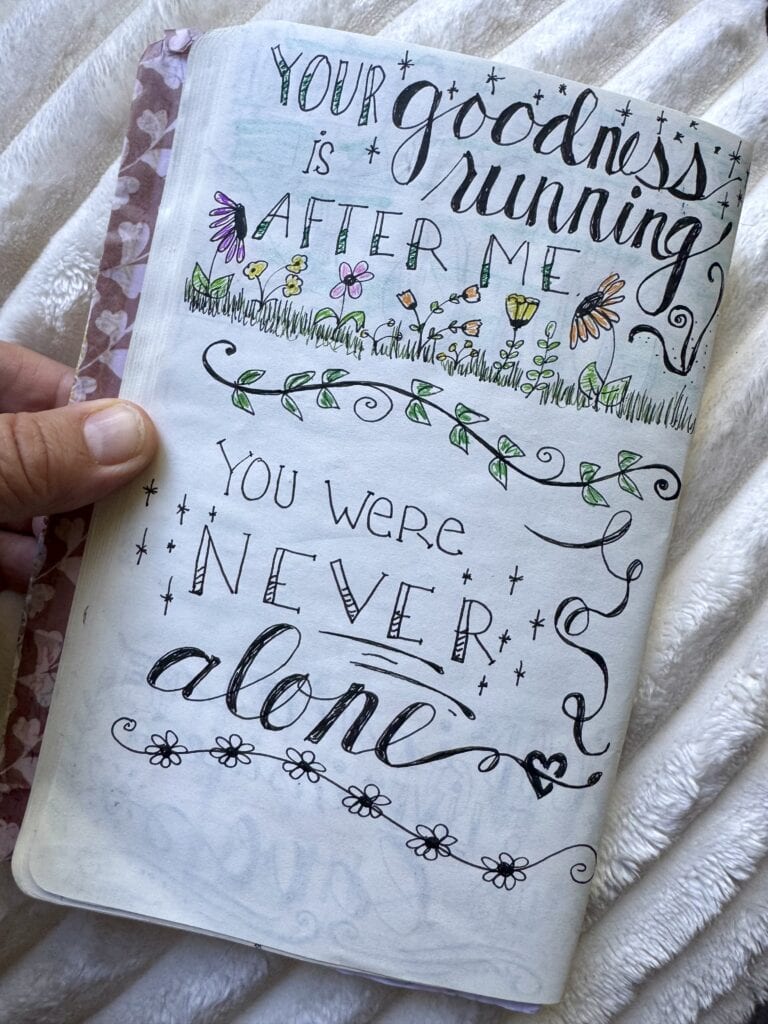 YOUR goodness
is running
AFTER ME.
YOU WeRe
NEVER
alone